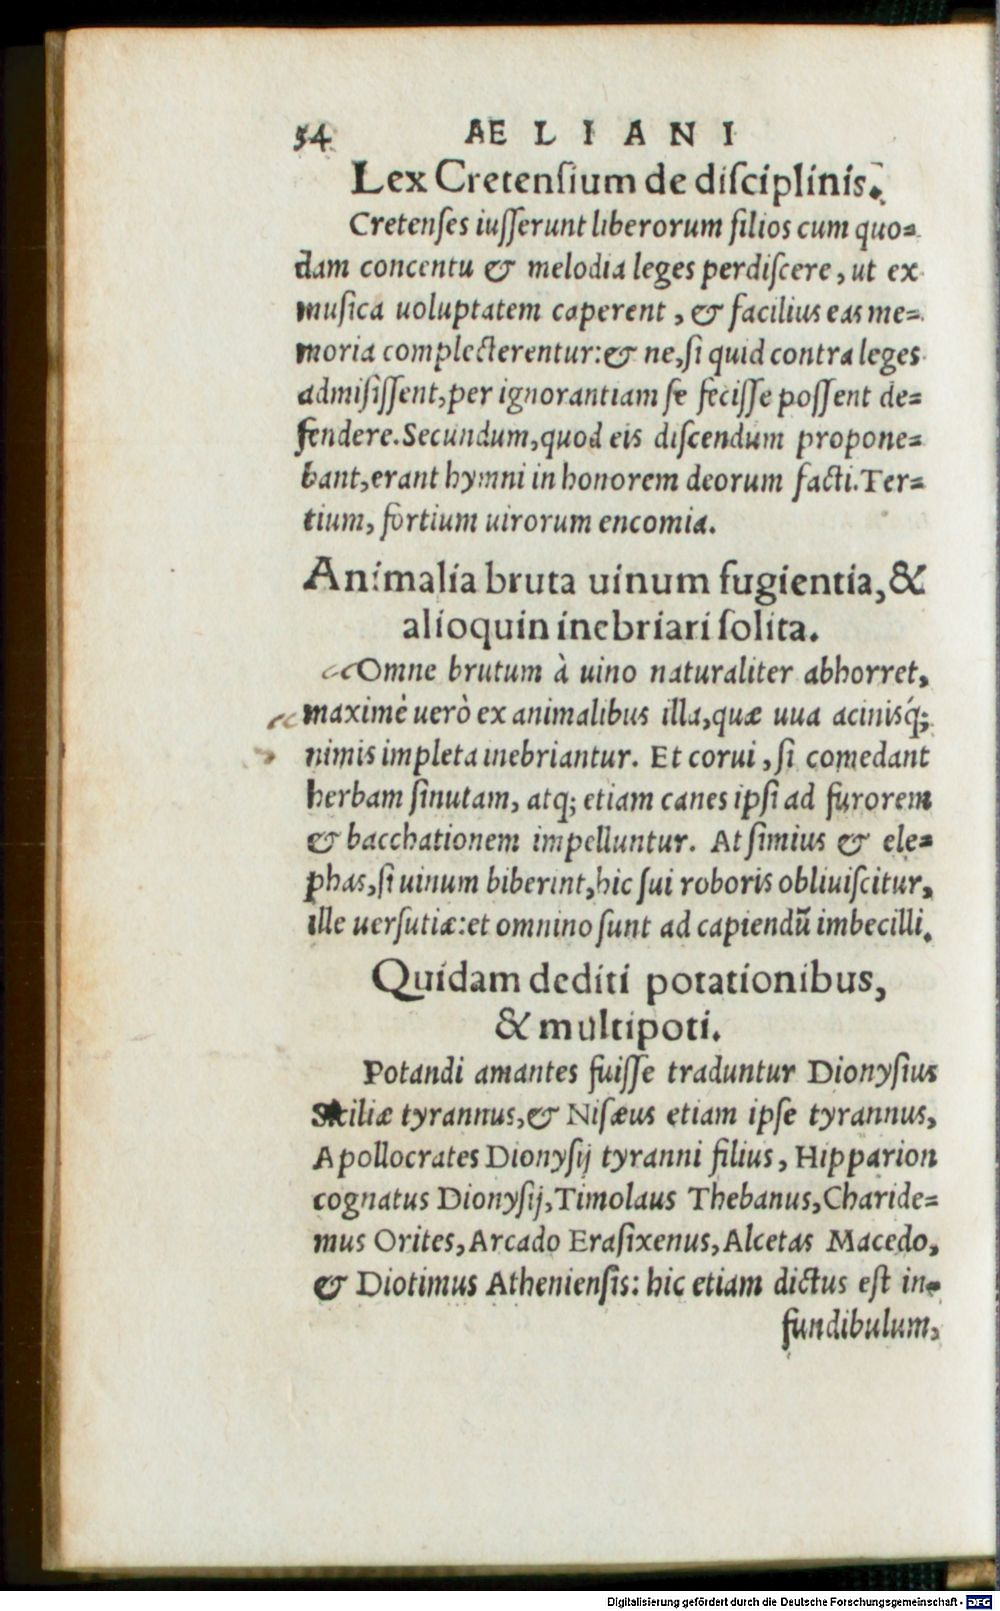 54 AELIANI
Lex Cretenſium de diſciplinis.
Cretenſes iuſſerunt liberorum filios cum quo=
dam concentu & melodia leges perdiſcere, ut ex
muſica uoluptatem caperent, & facilius eas me=
moria complecterentur: & ne, ſi quid contra leges
admiſiſſent, per ignorantiam ſe feciſſe poſſent de=
fendere. Secundum, quod eis diſcendum propone=
bant, erant hymni in honorem deorum facti. Ter=
tium, fortium uirorum encomia.
Animalia bruta uinum fugientia, &
alioquin inebriari ſolita.
Omne brutum à uino naturaliter abhorret,
maximè uerò ex animalibus illa, quæ uua acinisq́;
nimis impleta inebriantur. Et corui, ſi comedant
herbam ſinutam, atq; etiam canes ipſi ad furorem
& bacchationem impelluntur. At ſimius & ele=
phas, ſi uinum biberint, hic ſui roboris obliuiſcitur,
ille uerſutiæ: et omnino ſunt ad capiendũ imbecilli.
Quidam dediti potationibus,
& multipoti.
Potandi amantes fuiſſe traduntur Dionyſius
Siciliæ tyrannus, & Niſæus etiam ipſe tyrannus,
Apollocrates Dionyſij tyranni filius, Hipparion
cognatus Dionyſij, Timolaus Thebanus, Charide=
mus Orites, Arcado Eraſixenus, Alcetas Macedo,
& Diotimus Athenienſis: hic etiam dictus eſt in=
fundibulum,
Digitalisierung gefördert durch die Deutsche Forschungsgemeinschaft - DFG